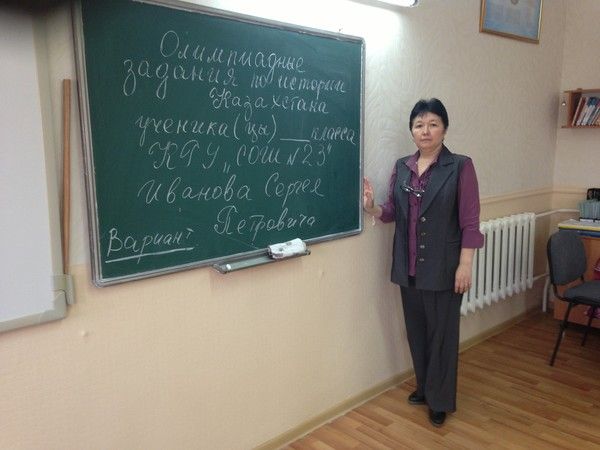 Олимпиадные
задания по истории
Казахстана
ученика(цы) ___ класса
КГУ „СОШ №23"
Иванова Сергея
Петровича
Вариант